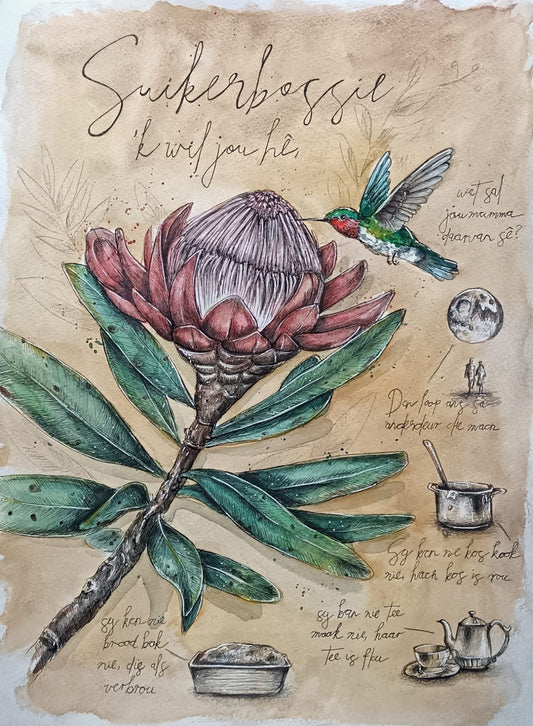 Suikerbossie
'k wil jou hê,
wat sal
jou mamma
daarvan sê?
Dan loop ons so
onderdeur die maan
Sy kan nie kos kook
nie, haar kos is rou
sy kan nie tee
maak nie, haar
tee is flou
sy kan nie
brood bak
nie, dig als
verbrou